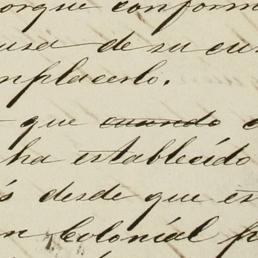 orque conform
usa de su cu
mplacerlo.
que cuando
ha establecido
s desde que es
n Colonial p